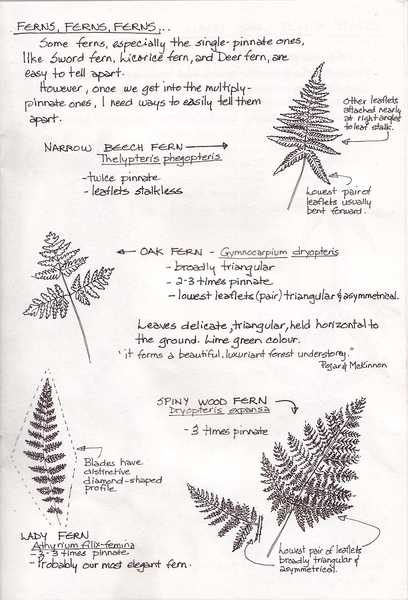 FERNS, FERNS, FERNS...
Some ferns, especially the single-pinnate ones,
like Sword fern, Licorice fern, and Deer fern, are
easy to tell apart.
However, once we get into the multiply-
pinnate ones, I need ways to easily tell them
apart.
Other leaflets
attached nearly
at right angles
to leaf stalk.
NARROW BEECH FERN
Thelypteris phegopteris
- twice pinnate
- leaflets stalkless
Lowest pair of
leaflets usually
bent forward.
OAK FERN - Gymnocarpium dryopteris
- broadly triangular
- 2-3 times pinnate
- lowest leaflets (pair) triangular & asymmetrical.
Leaves delicate, triangular, held horizontal to
the ground. Lime green colour.
"it forms a beautiful, luxuriant forest understorey."
Pojar & McKinnon
SPINY WOOD FERN
Dryopteris expansa
- 3 times pinnate
Blades have
distinctive
diamond-shaped
profile
LADY FERN
Athyrium filix-femina
- 2-3 times pinnate
- Probably our most elegant fern.
Lowest pair of leaflets
broadly triangular &
asymmetrical.